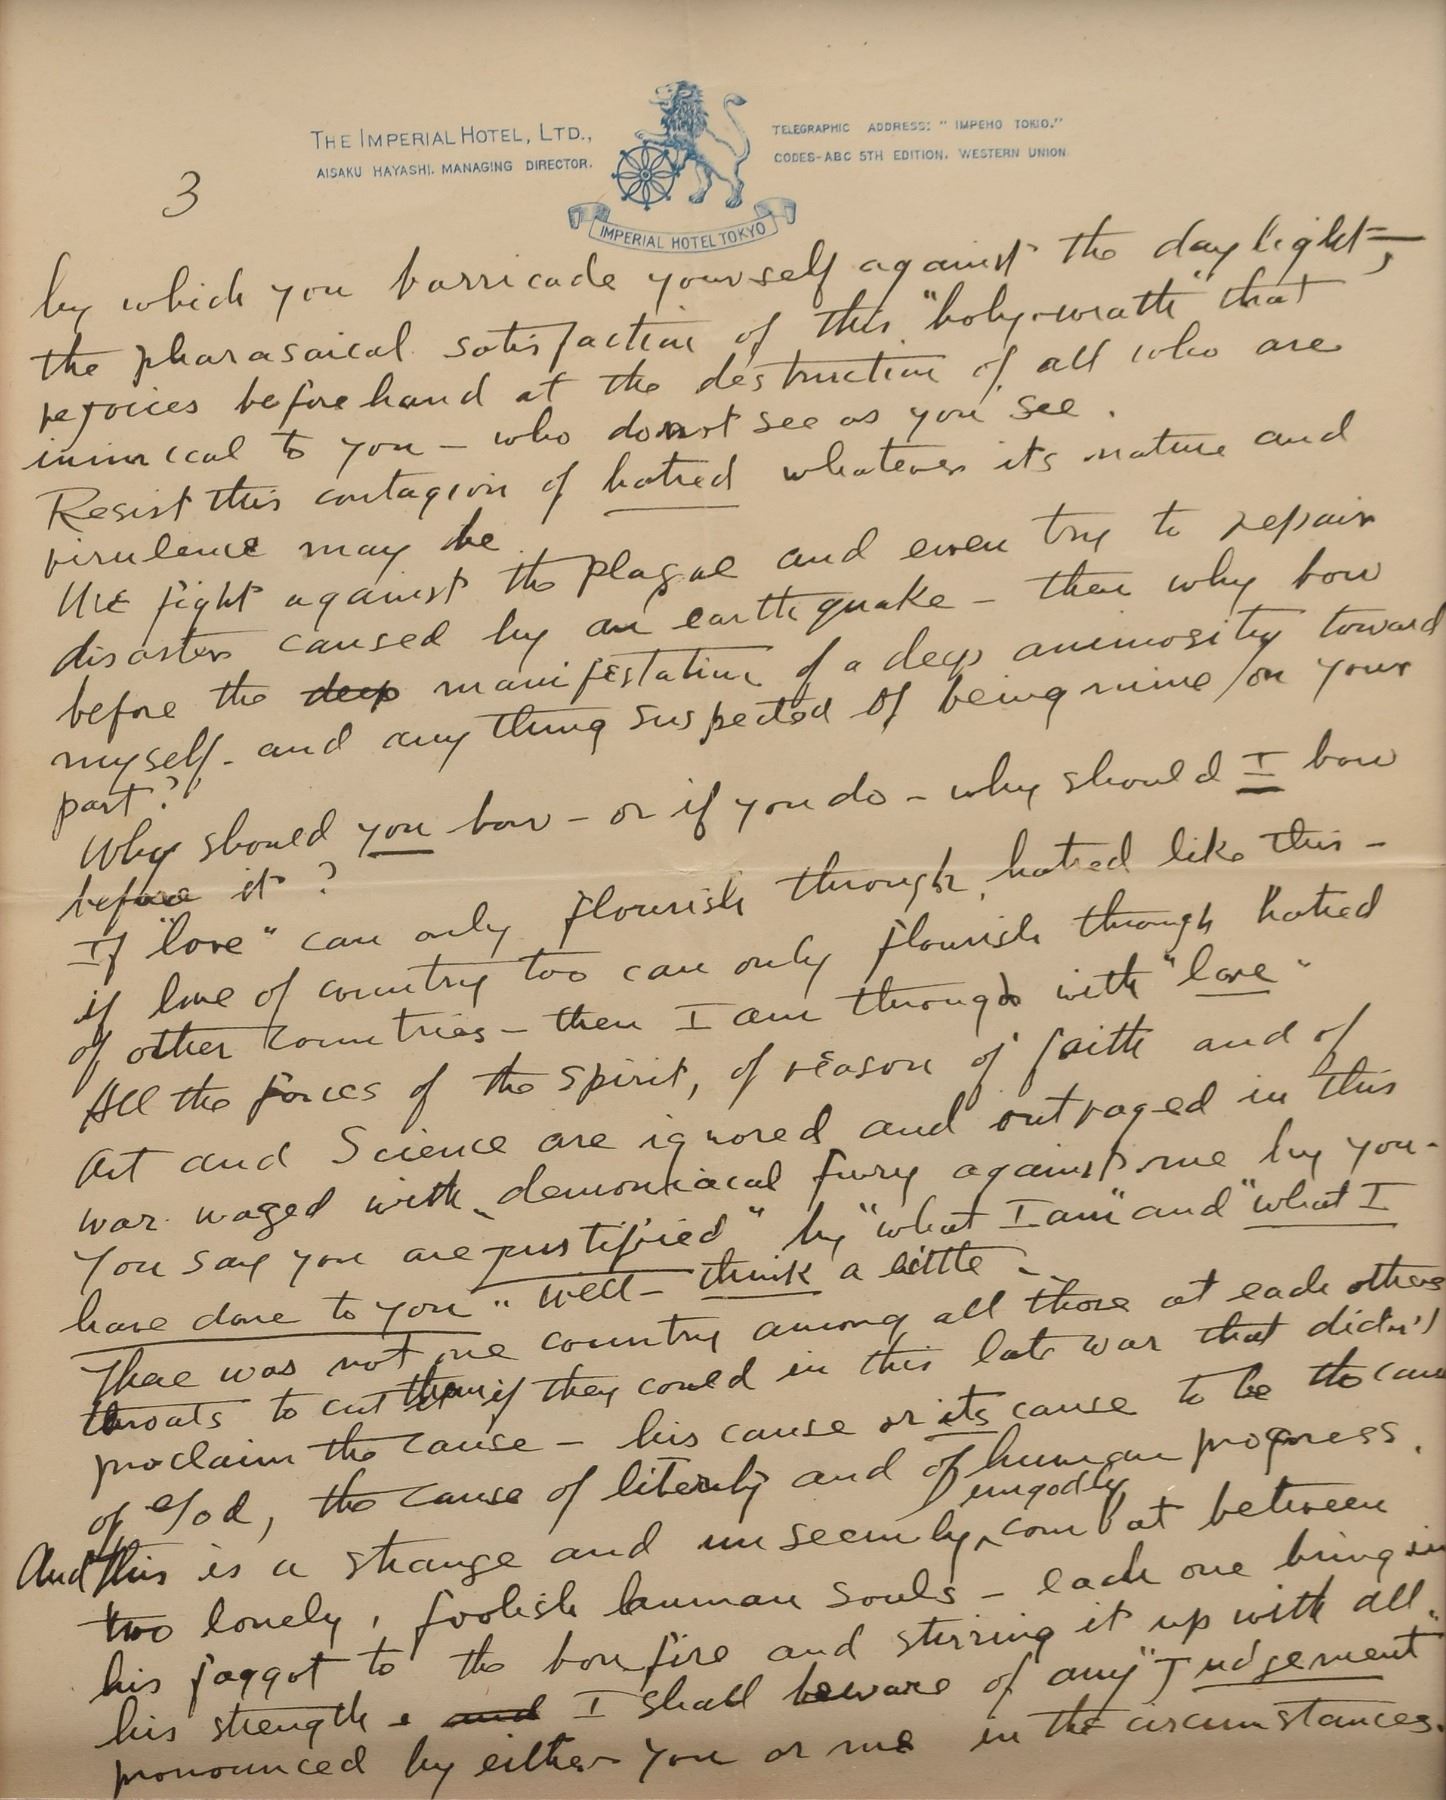 THE IMPERIAL HOTEL, LTD.,
AISAKU HAYASHI. MANAGING DIRECTOR.
TELEGRAPHIC ADDRESS: "IMPEHO TOKIO."
CODES-ABC 5TH EDITION. WESTERN UNION.
IMPERIAL HOTEL TOKYO
3
by which you barricade yourself against the daylight—,
the pharasaical satisfaction of this "holy-wrath" that
rejoices beforehand at the destruction of all who are
inimical to you – who do not see as you see.
Resist this contagion of hatred whatever its nature and
virulence may be
We fight against the plague and even try to repair
disasters caused by an earthquake – then why bow
before the deep manifestation of a deep animosity toward
myself - and any thing suspected of being mine / on your
part?
Why should you bow – or if you do – why should I bow
before it ?
If "love" can only flourish through hatred like this –
if love of country too can only flourish through hatred
of other countries – then I am through with "love"
All the forces of the spirit, of reason of faith and of
Art and Science are ignored and outraged in this
war waged with demoniacal fury against me by you -
You say you are "justified" by "what I am" and "what I
have done to you" Well – think a little –
There was not one country among all those at each others
throats to cut them if they could in this late war that didn't
proclaim the cause – his cause or its cause to be the cause
of God, the cause of liberty and of human progress.
And this is a strange and unseemly, ungodly combat between
two lonely, foolish human souls – each one bringing
his faggot to the bonfire and stirring it up with all
his strength. and I shall beware of any "Judgement"
pronounced by either you or me in the circumstances.